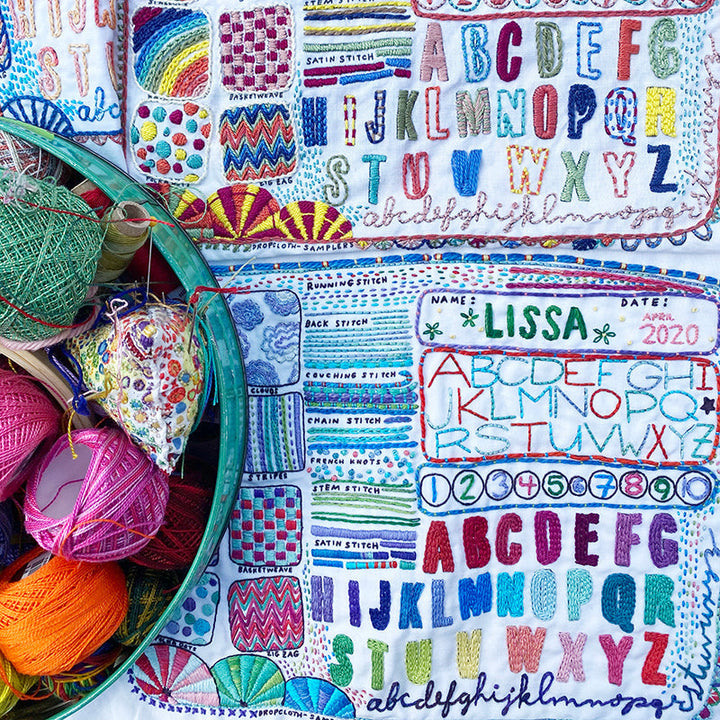 STEM STITCH
SATIN STITCH
BASKETWEAVE
ZIG ZAG
ABCDEFG
HIJKLMNOPQR
STUVWXYZ
abcdefghijklmnopqrstuvw
DROPCLOTH-SAMPLERS
abc
RUNNING STITCH
BACK STITCH
COUCHING STITCH
CLOUDS
CHAIN STITCH
FRENCH KNOTS
STRIPES
STEM STITCH
SATIN STITCH
BASKETWEAVE
ZIG ZAG
NAME: DATE:
LISSA APRIL 2020
ABCDEFGHI
JKLMNOPQ
RSTUVWXYZ
1 2 3 4 5 6 7 8 9 10
ABCDEFG
HIJKLMNOPQR
STUVWXYZ
abcdefghijklmnopqrstuvwxyz
DROPCLOTH-SAMPLERS